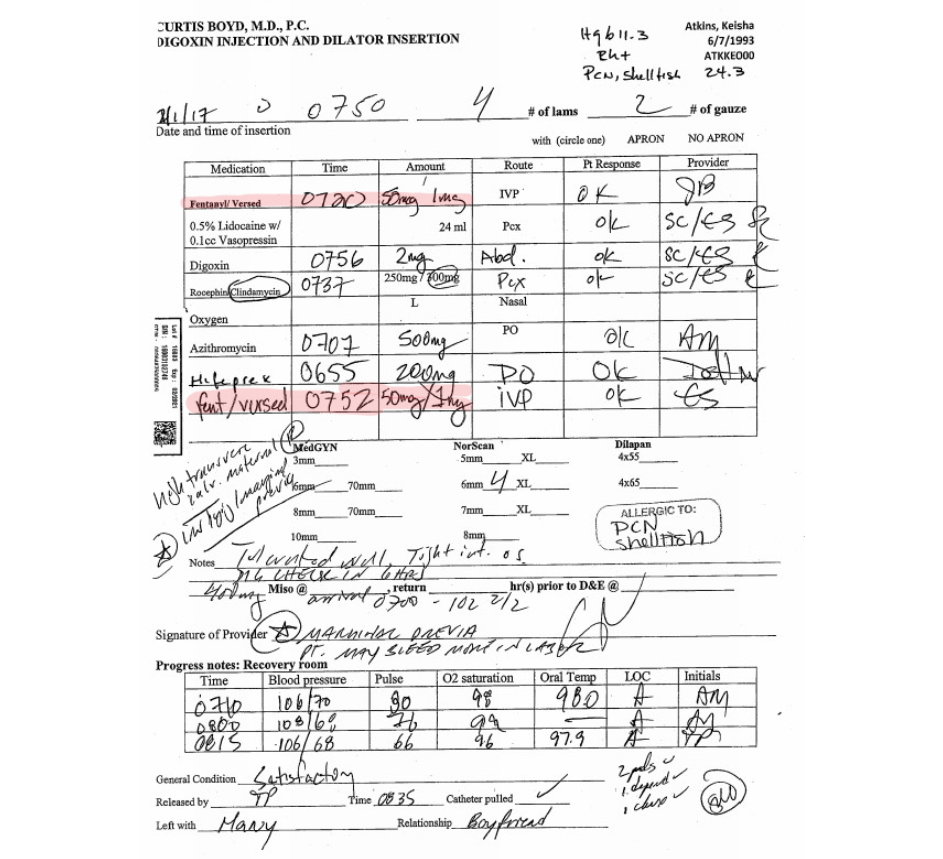 CURTIS BOYD, M.D., P.C.
DIGOXIN INJECTION AND DILATOR INSERTION
Hgb 11.3
Rh+
PCN, shellfish 24.3
Atkins, Keisha
6/7/1993
ATKKE000
0750 4 # of lams 2 # of gauze
Date and time of insertion
with (circle one) APRON NO APRON
Medication Time Amount Route Pt Response Provider
Fentanyl/ Versed 0720 50mg / 1mg IVP OK JB
0.5% Lidocaine w/ 0.1cc Vasopressin 24 ml Pcx ok SC/ES
Digoxin 0756 2mg Abd. ok SC/ES
Rocephin/Clindamycin 0737 250mg / 300mg Pcx ok SC/ES
Oxygen L Nasal
Azithromycin 0707 500mg PO ok AM
0655 200mg PO OK
fent/versed 0752 50mg/1mg IVP ok ES
MedGYN NorScan Dilapan
3mm 5mm XL 4x55
6mm 70mm 6mm 4 XL 4x65
8mm 70mm 7mm XL
10mm 8mm
High transverse
maternal
imaging
previa
ALLERGIC TO:
PCN
Shellfish
Notes Tolerated well, Tight int. os
CHECK IN 6 HRS
400mg Miso @ arrival 0700 - , return hr(s) prior to D&E @
Signature of Provider MARGINAL PREVIA
PT. MAY BLEED MORE IN
Progress notes: Recovery room
Time Blood pressure Pulse O2 saturation Oral Temp LOC Initials
0710 106/70 90 98 980 A AM
0800 108/60 76 99 — A
0815 106/68 66 96 97.9 A
General Condition Satisfactory
Released by TP Time 0835 Catheter pulled ✓
Left with Relationship Boyfriend
2 pads ✓
1 depend ✓